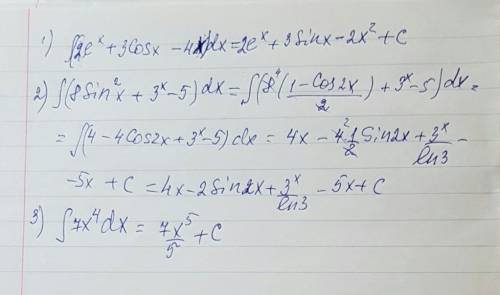 1) ∫(2eˣ + 3Cosx - 4x)dx = 2eˣ + 3Sinx - 2x² + C
2) ∫(8Sin²x + 3ˣ - 5)dx = ∫(8⁴(1 - Cos2x)/2 + 3ˣ - 5)dx =
= ∫(4 - 4Cos2x + 3ˣ - 5)dx = 4x - 4² 1/2 Sin2x + 3ˣ/ln3 -
- 5x + C = 4x - 2Sin2x + 3ˣ/ln3 - 5x + C
3) ∫7x⁴dx = 7x⁵/5 + C